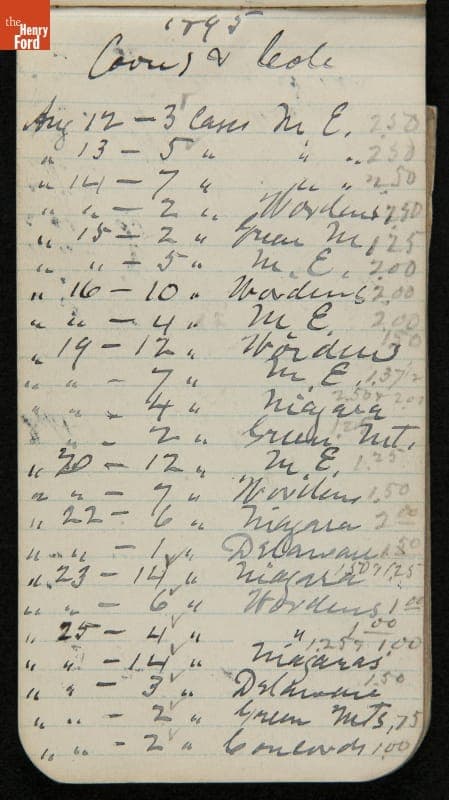 the
Henry
Ford
1895
& Cole
Aug 12 - 3 Cases M. E. 250
" 13 - 5 " " " 250
" 14 - 7 " " " 2.50
" " - 2 " Wordens 250
" 15 - 2 " Green M, 125
" " - 5 " M. E. 200
" 16 - 10 " Wordens 2.00
" " - 4 " M. E. 2.00
" 19 - 12 " Wordens 150
" " - 7 " M. E. 1.37½
" " - 4 " Niagara
" - 2 " Green Mt.
" 20 - 12 " M. E. 1.25
" " - 7 " Wordens 1.50
" 22 - 6 " Niagara 2 00
" " - 1 " Delaware 1.50
" 23 - 14 " Niagara 150 & 125
" " - 6 " Wordens 1 00
" 25 - 4 " " 1 00
" " - 14 " Niagaras 1.25 & 100
" " - 3 " Delaware 1.50
" " - 2 " Green Mts, 75
" " - 2 " Concords 1.00